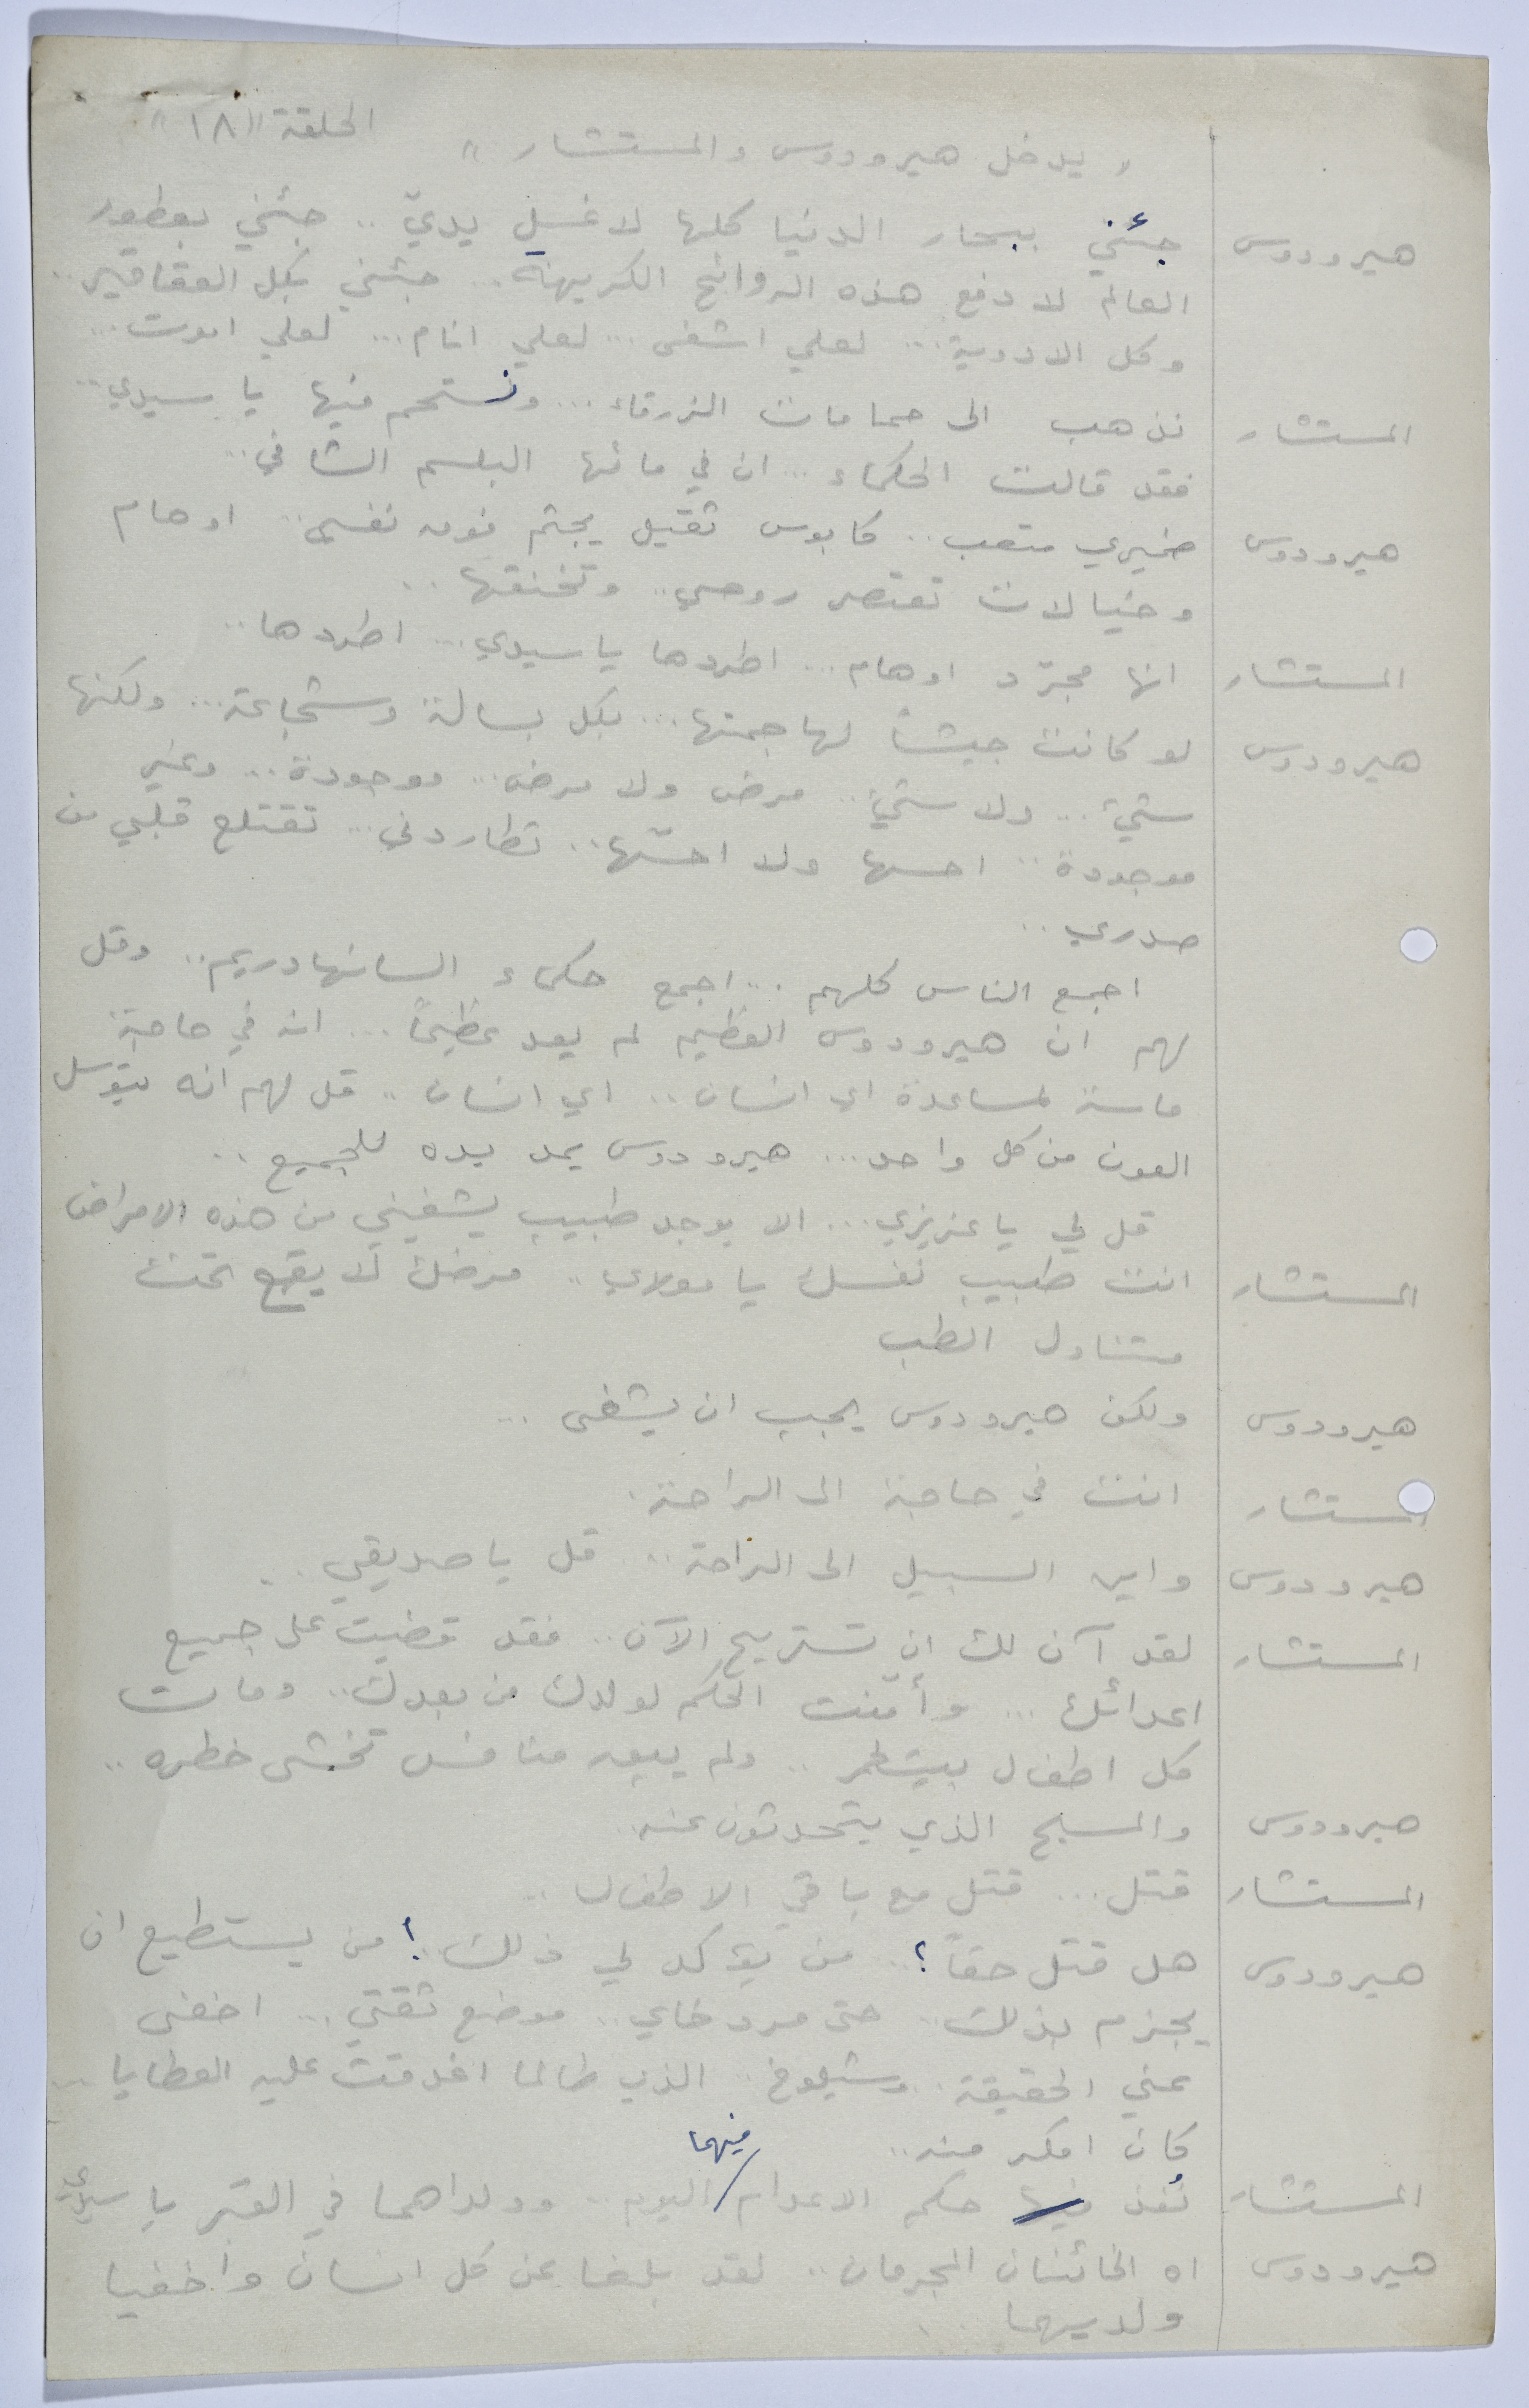 الحلقة "١٨"
" يدخل هيرودوس والمستشار "
هيرودوس جئني ببحار الدنيا كلها لاغسل يديّ .. جئني بعطور
العالم لادفع هذه الروائح الكريهة .. جئني بكل العقاقير ..
وكل الادوية ... لعلي اشفى ... لعلي انام ... لعلي اموت ...
المستشار نذهب الى حمامات الزرقاء ... ونستحم فيها يا سيدي ..
فقد قالت الحكماء ... ان في مائها البلسم الشافي ..
هيرودوس ضميري متعب .. كابوس ثقيل يجثم فوق نفسي .. اوهام
وخيالات تعتصر روحي .. وتخنقها ..
المستشار انها مجرّد اوهام ... اطردها يا سيدي ... اطردها ..
هيرودوس لو كانت جيشاً لهاجمتها ... بكل بسالة وشجاعة ... ولكنها
شيء ... ولا شيء .. مرض ولا مرض ... موجودة ... وغير
موجودة .. احسها ولا احسّها .. تطاردني ... تقتلع قلبي من
صدري ..
اجمع الناس كلهم ... اجمع حكماء السانهادريم .. وقل
لهم ان هيرودوس العظيم لم يعد عظيماً ... انه في حاجة
ماسة لمساعدة اي انسان .. اي انسان .. قل لهم انه يتوسل
العون من كل واحد ... هيرودوس يمد يده للجميع ..
قل لي يا عزيزي ... الا يوجد طبيب يشفيني من هذه الامراض
المستشار انت طبيب نفسك يا مولاي .. مرضك لا يقع تحت
متناول الطب
هيرودوس ولكن هيرودوس يجب ان يشفى ...
المستشار انت في حاجة الى الراحة .
هيرودوس واين السبيل الى الراحة .. قل يا صديقي ..
المستشار لقد آن لك ان تستريح الآن .. فقد قضيت على جميع
اعدائك ... وأمّنت الحكم لولدك من بعدك .. ومات
كل اطفال بيت لحم .. ولم يبق منافس تخشى خطره ..
هيرودوس والمسيح الذي يتحدثون عنه ..
المستشار قتل ... قتل مع باقي الاطفال ..
هيرودوس هل قتل حقاً ؟ .. من يؤكد لي ذلك ؟ من يستطيع ان
يجزم بذلك .. حتى مردخاي .. موضع ثقتي ... اخفى
عني الحقيقة .. وشيلوخ .. الذي طالما اغدقت عليه العطايا ...
كان امكر منه ..
فيهما
المستشار نُفذ فيها حكم الاعدام / اليوم .. وولداهما في القبر يا سيدي
هيرودوس اه الخائنان المجرمان .. لقد بلغا عن كل انسان وأخفيا
ولديهما ..